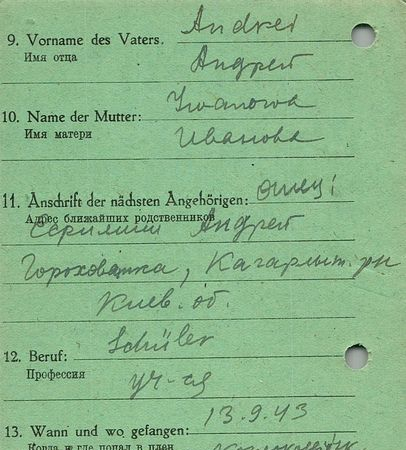 Andrei
9. Vorname des Vaters.
Имя отца
Андрей
Iwanowa
10. Name der Mutter:
Имя матери
Иванова
11. Anschrift der nächsten Angehörigen: отец:
Адрес ближайших родственников
Андрей
Гороховатка, Кагарлыт. рн
Киев. об.
Schüler
12. Beruf:
Профессия
уч-ся
13.9.43
13. Wann und wo gefangen:
Когда и где попал в плен